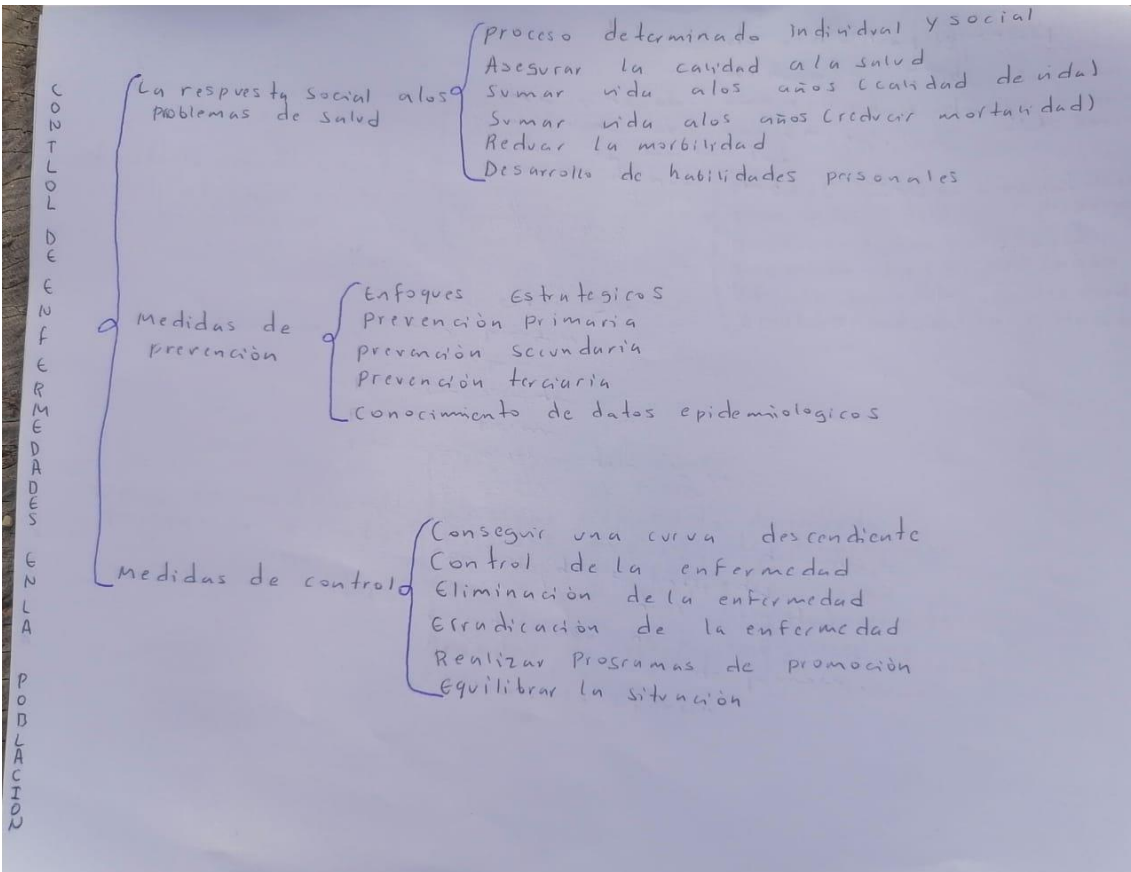 CONTLOL DE ENFERMEDADES EN LA POBLACIÓN
La respuesta social alos
problemas de salud
proceso determinado individual y social
Asegurar la calidad a la salud
Sumar vida alos años (calidad de vida)
Sumar vida alos años (reducir mortalidad)
Reducir la morbilidad
Desarrollo de habilidades personales
Medidas de
prevención
Enfoques Estrategicos
prevención primaria
prevención secundaria
prevención terciaria
conocimiento de datos epidemiologicos
Medidas de control
Conseguir una curva descendiente
Control de la enfermedad
Eliminación de la enfermedad
Errudicación de la enfermedad
Realizar Programas de promoción
Equilibrar la situación